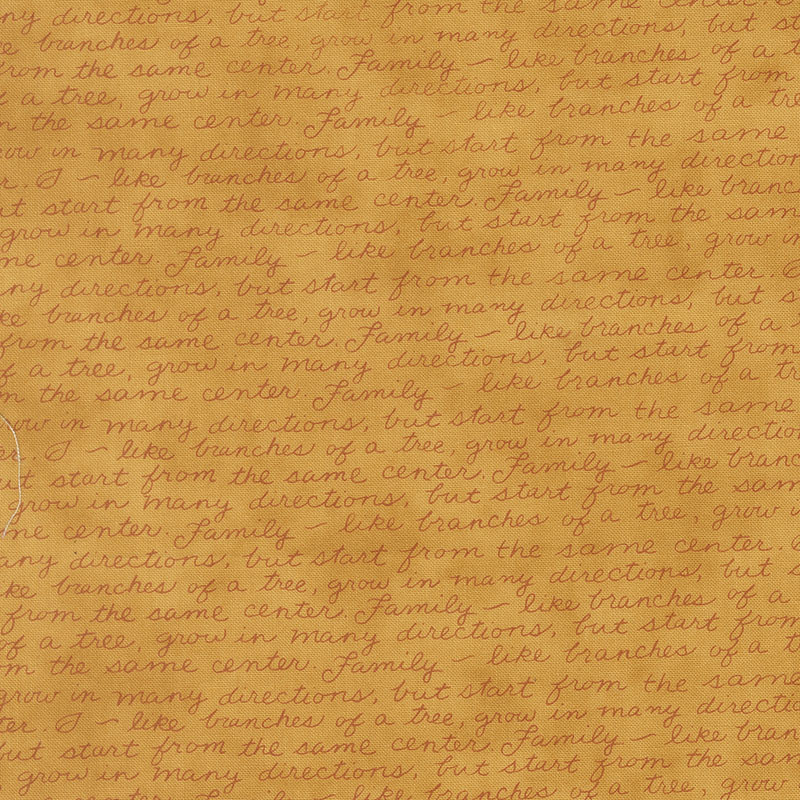 ny directions, but start from the same center.
e branches of a tree, grow in many directions, but st
from the same center. Family — like branches of a t
a tree, grow in many directions, but start from
n the same center. Family — like branches of a tre
ow in many directions, but start from the same
r. — like branches of a tree, grow in many direction
ut start from the same center. Family — like branc
grow in many directions, but start from the sam
me center. Family — like branches of a tree, grow in
ny directions, but start from the same center.
ke branches of a tree, grow in many directions, but s
from the same center. Family — like branches of a
f a tree, grow in many directions, but start from
m the same center. Family — like branches of a tr
ow in many directions, but start from the same
er. — like branches of a tree, grow in many directio
ut start from the same center. Family — like branc
grow in many directions, but start from the sam
me center. Family — like branches of a tree, grow
any directions, but start from the same center.
ke branches of a tree, grow in many directions, but s
from the same center. Family — like branches of a
of a tree, grow in many directions, but start from
om the same center. Family — like branches of a t
grow in many directions, but start from the same
ter. — like branches of a tree, grow in many directio
but start from the same center. Family — like bran
grow in many directions, but start from the sam
center. Family — like branches of a tree, grow